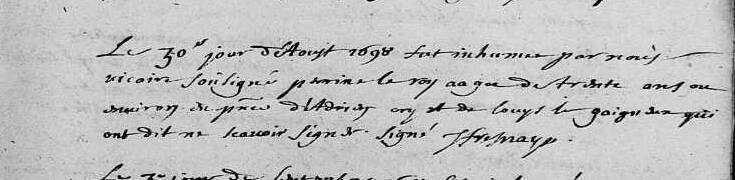 Le 30e jour d'Aoust 1698 fut inhumee par nous
vicaire soussigné perrine le roy aagee de trente ans ou
environ en pnce d'Adrien et de Louys le gaigneur qui
ont dit ne scavoir signer. signé
Le 3e jour de Septembre